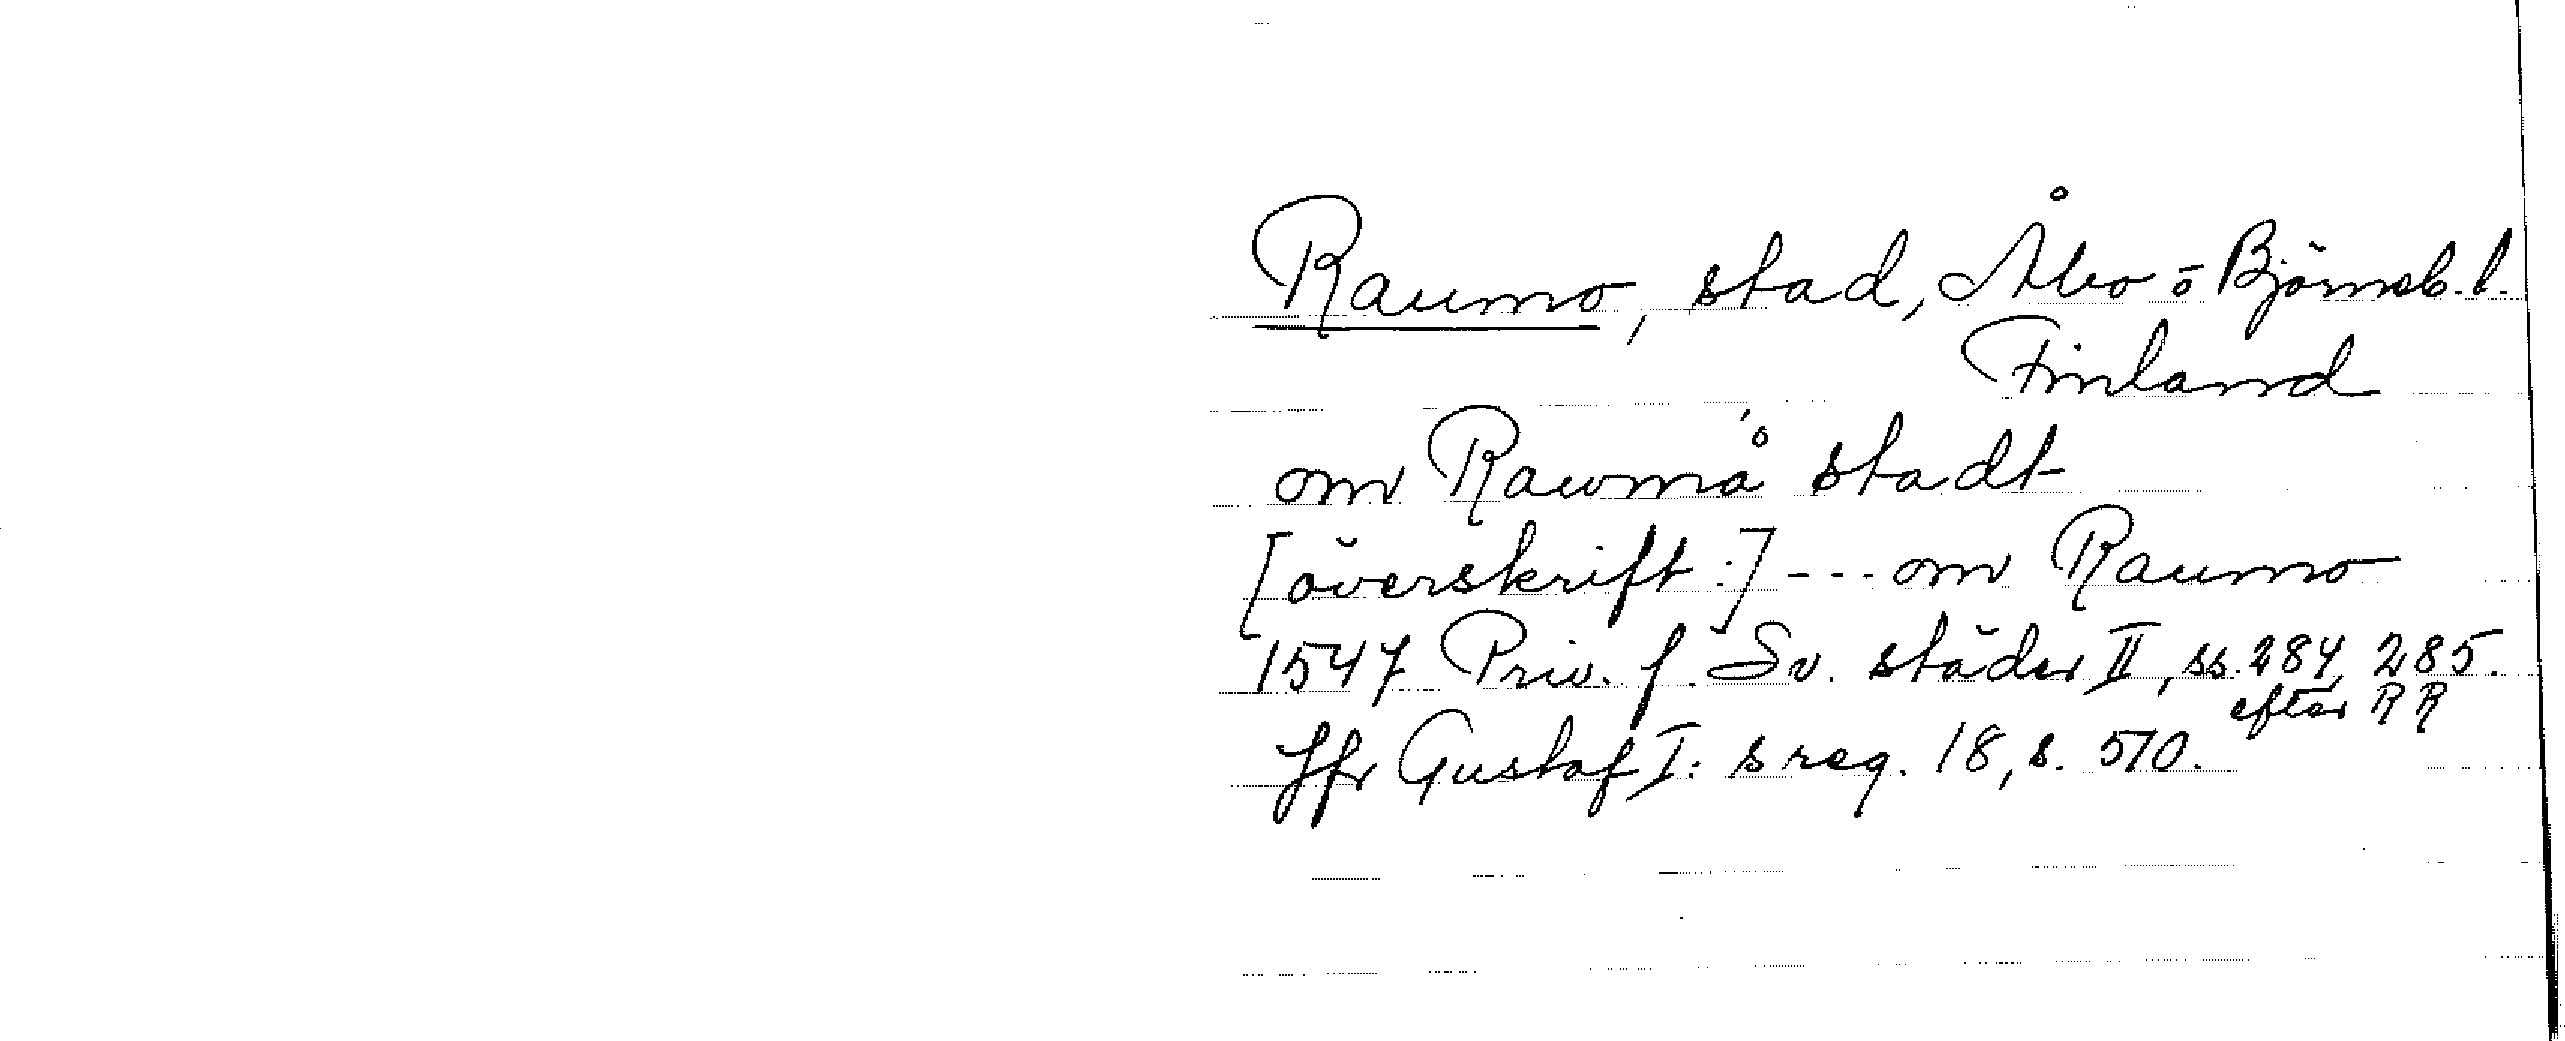 Raumo, stad, Åbo o Björneb. l.
Finland
om Rawmå stadt
[överskrift:] --- om Raumo
1547 Priv. f. Sv. städer II, ss. 284, 285.
efter RR
Jfr Gustaf I:s reg. 18, s. 510.